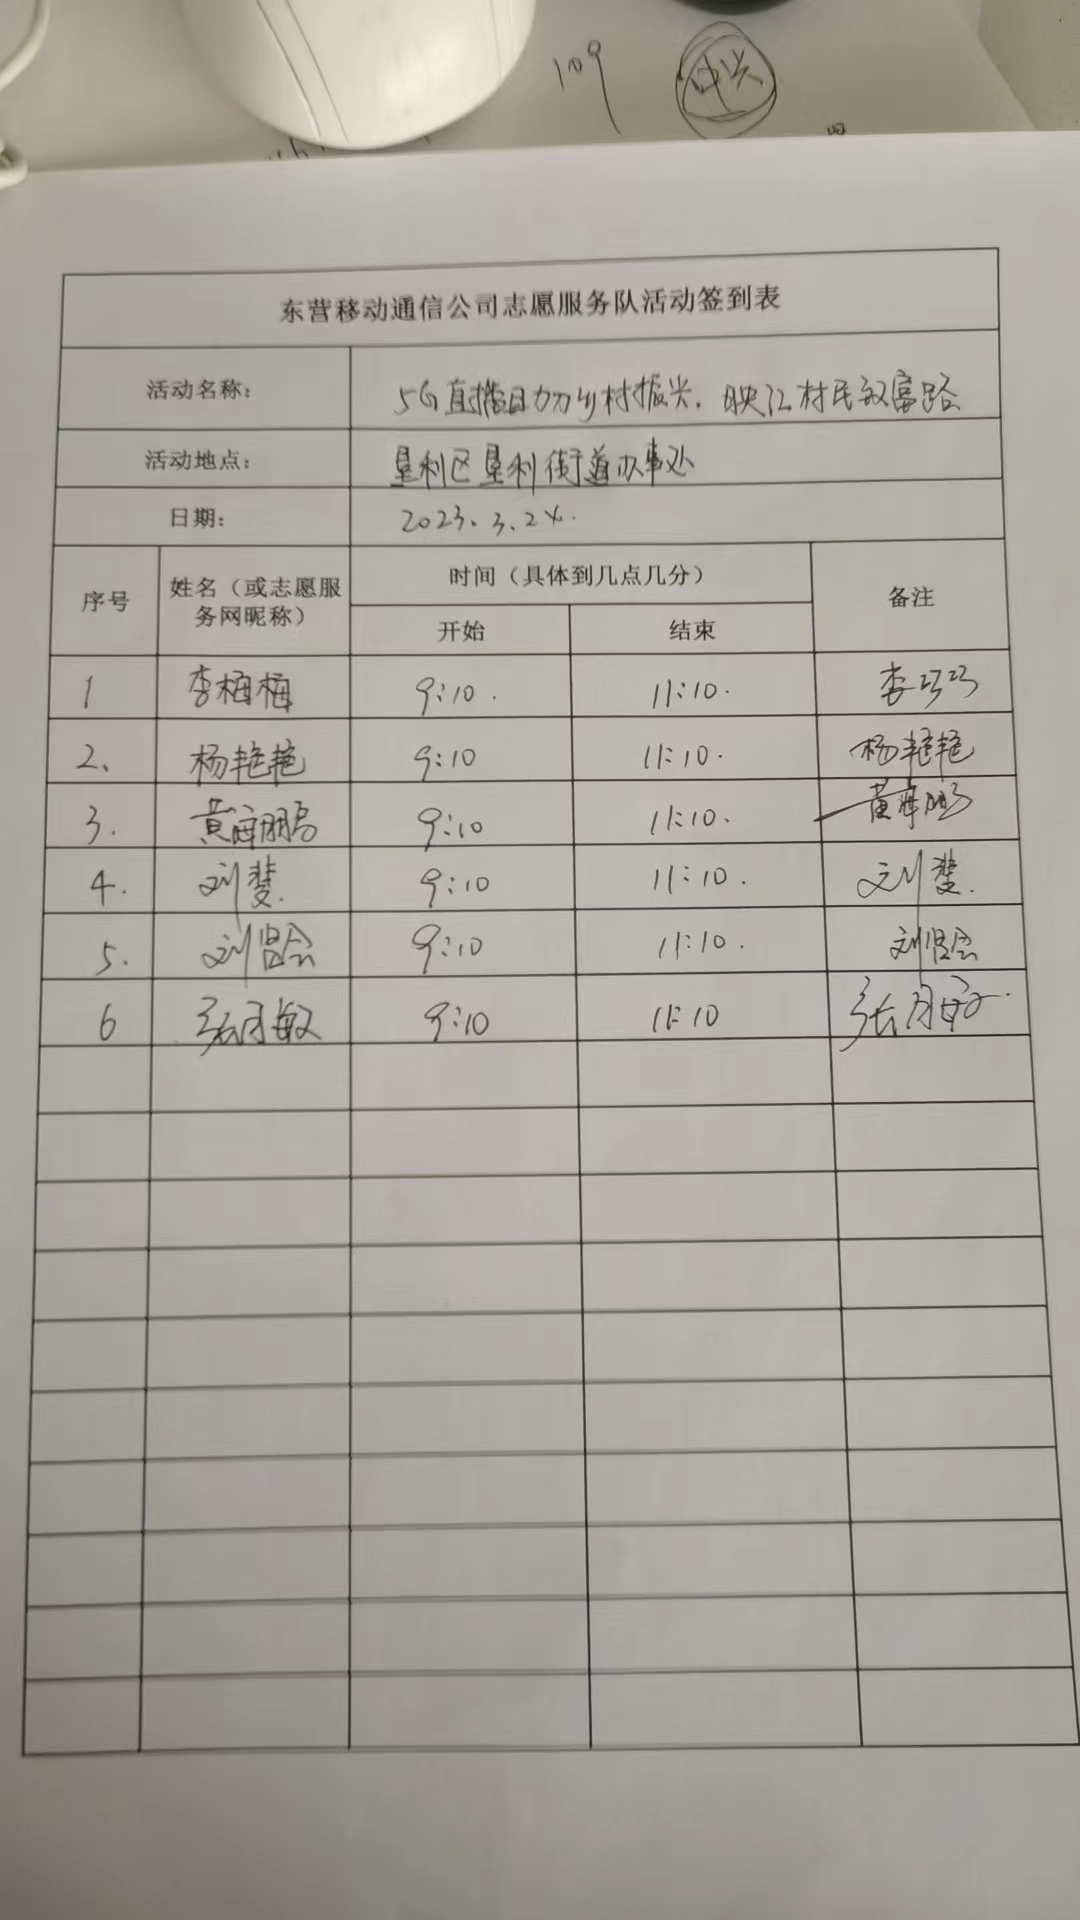 109
中兴
东营移动通信公司志愿服务队活动签到表
活动名称: 5G直播助力乡村振兴,映红村民致富路
活动地点: 垦利区垦利街道办事处
日期: 2023.3.24.
序号 姓名（或志愿服务网昵称） 时间（具体到几点几分） 备注
开始 结束
1 李梅梅 9:10. 11:10. 李
2、 杨艳艳 9:10 11:10. 杨艳艳
3. 黄海鹏 9:10 11:10. 黄海鹏
4. 刘斐. 9:10 11:10. 刘斐.
5. 刘贤会 9:10 11:10. 刘贤会
6 张月敏 9:10 11:10 张月敏.